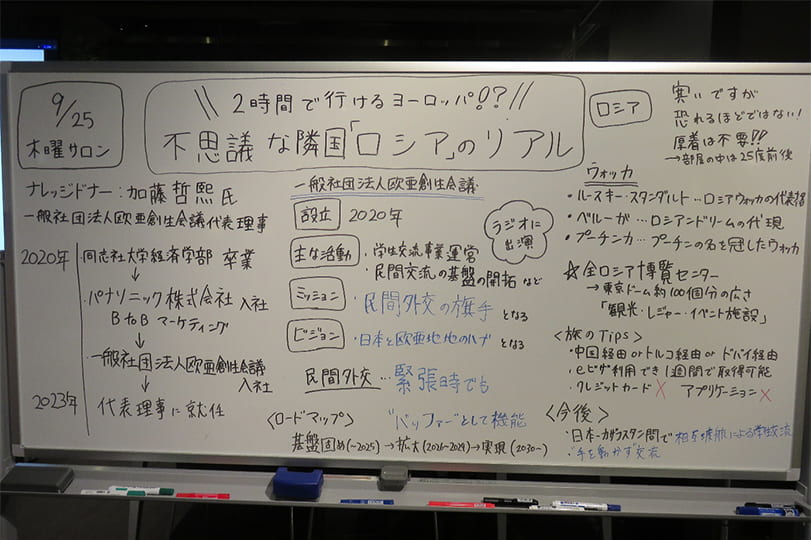 9/25
木曜サロン
\\ 2時間で行けるヨーロッパ!?//
不思議な隣国「ロシア」のリアル
ナレッジドナー:加藤哲熙氏
一般社団法人欧亜創生会議代表理事
2020年 同志社大学経済学部 卒業
↓
パナソニック株式会社 入社
BtoB マーケティング
↓
一般社団法人欧亜創生会議
入社
↓
2023年 代表理事に就任
一般社団法人欧亜創生会議
設立 2020年
ラジオに
出演
主な活動 ・学生交流事業運営
・民間交流の基盤の開拓 など
ミッション ・民間外交の旗手 となる
ビジョン ・日本と欧亜地地のハブ となる
民間外交…緊張時でも
"バッファー"として機能
<ロードマップ>
基盤固め(~2025)→拡大(2026~2029)→実現(2030~)
ロシア
寒いですが
恐れるほどではない!
厚着は不要!!
→部屋の中は25度前後
ウォッカ
・ルースキー・スタンダルト…ロシアウォッカの代表格
・ベルーガ…ロシアンドリームの代現
・プーチンカ…プーチンの名を冠したウォッカ
☆全ロシア博覧センター
→東京ドーム約100個分の広さ
「観光・レジャー・イベント施設」
<旅のTips>
・中国経由orトルコ経由orドバイ経由
・eビザ利用でき1週間で取得可能
・クレジットカード× アプリケーション×
<今後>
・日本-カザフスタン間で相互渡航による学生交流
・手を動かす交流